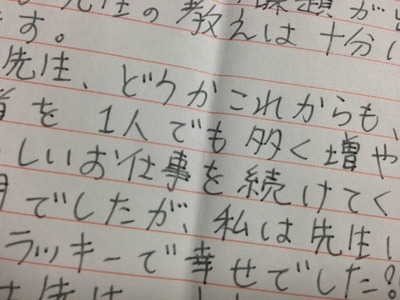 先生の教えは十分
す。
先生、どうかこれからも、
を1人でも多く増や
しいお仕事を続けてく
でしたが、私は先生
ラッキーで幸せでした?